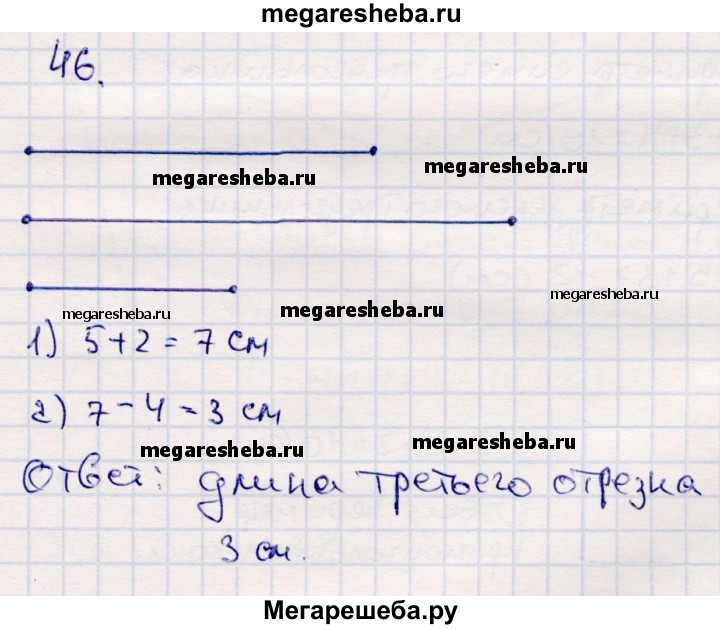 megaresheba.ru
46.
megaresheba.ru
megaresheba.ru
megaresheba.ru
megaresheba.ru
megaresheba.ru
1) 5+2=7 см
2) 7-4=3 см
megaresheba.ru
megaresheba.ru
Ответ: длина третьего отрезка
3 см.
Мегарешеба.ру